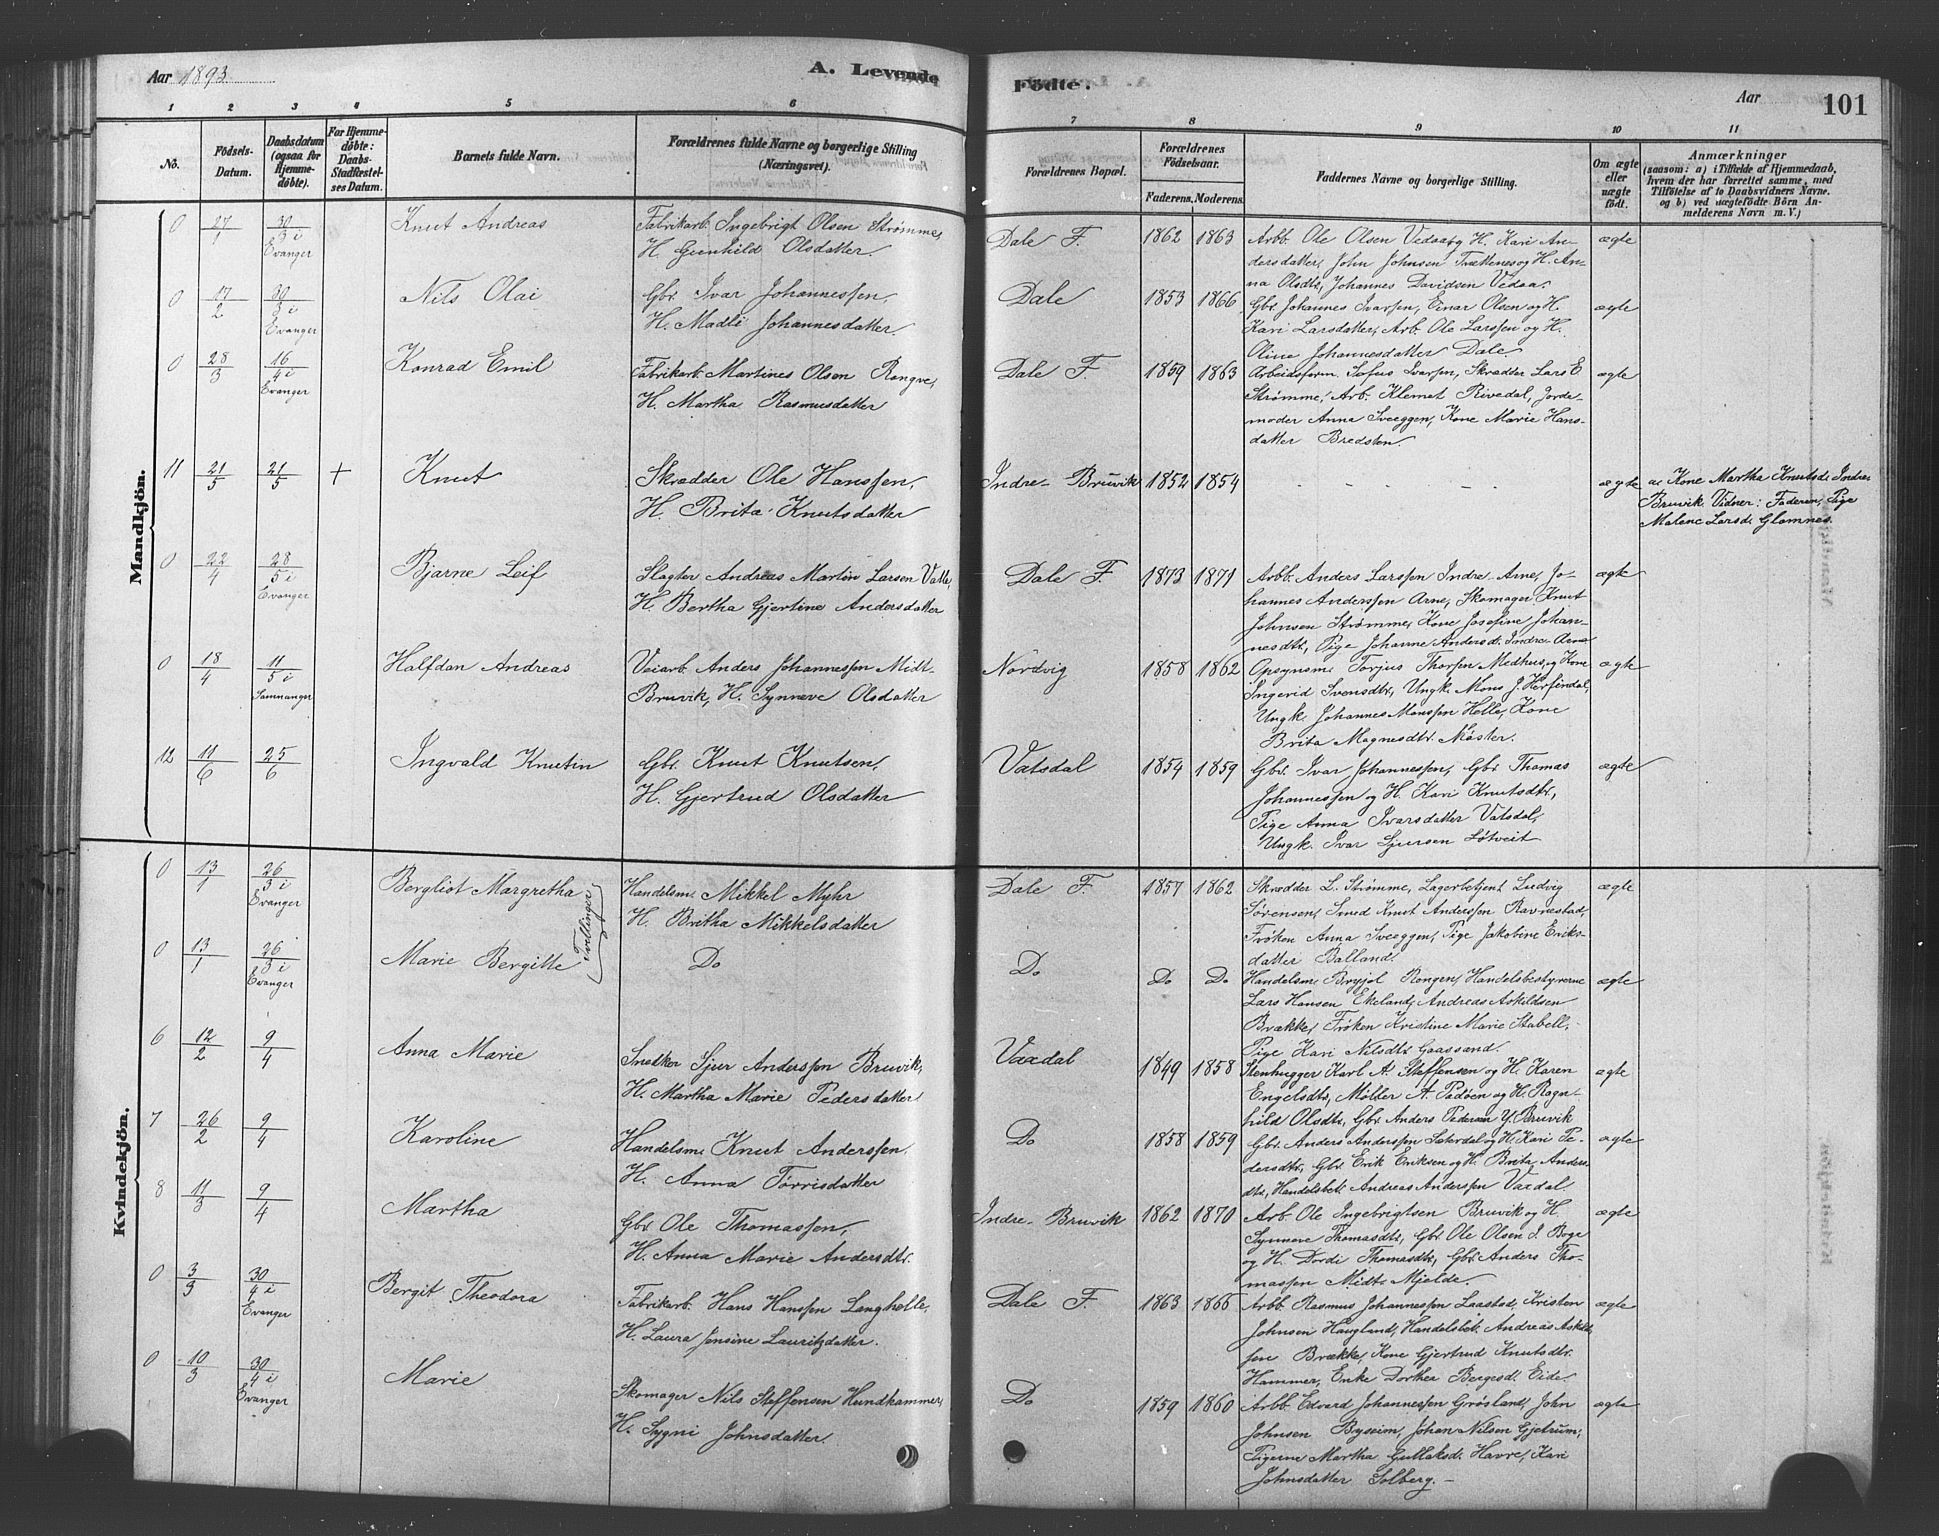 Aar 1893 A. Levende Födte. Aar 101
1 2 3 4 5 6 7 8 9 10 11
No. Födsels-Datum. Daabsdatum (ogsaa for Hjemme-döbte). For Hjemme-döbte: Daabs-Stadfæstel-ses Datum. Barnets fulde Navn. Forældrenes fulde Navne og borgerlige Stilling (Næringsvei). Forældrenes Bopæl. Forældrenes Födselsaar. Faderens. Moderens. Faddernes Navne og borgerlige Stilling. Om ægte eller uægte födt. Anmærkninger (saasom: a) i Tilfælde af Hjemmedaab, hvem der har forrettet samme, med Tilföielse af to Daabsvidners Navne, og b) ved uægtefödte Börn An-melderens Navn m. V.)
Mandkjön.
0 27/1 30/3 i Evanger Knut Andreas Fabrikarb. Ingebrigt Olsen Strømme, Dale F. 1862 1863 Arbb. Ole Olsen Vedaa og H. Kari An- ægte
H. Gunhild Olsdatter. dersdatter, John Johnsen Trættenes og H. An-
na Olsdtr, Johannes Davidsen Vedaa.
0 17/2 30/3 i Evanger Nils Olai Gbr. Ivar Johannessen, Dale 1853 1866 Gbr. Johannes Ivarsen, Einar Olsen og H. ægte
H. Madli Johannesdatter. Kari Larsdatter, Arb. Ole Larssen og H.
Oline Johannesdatter Dale
0 28/3 16/4 i Evanger Konrad Emil Fabrikarb. Martines Olsen Rongve, Dale F. 1859 1863 Arbeidsform. Sofus Ivarsen, Skrædder Lars E ægte
H. Martha Rasmusdatter Strømme, Arb. Klemet Rivedal, Jorde-
moder Anna Sveeggen, Kone Marie Hans-
datter Bredsten
11 21/5 21/5 + Knut Skrædder Ole Hanssen, Indre-Bruvik 1852 1854 - - - - ægte a. Kone Martha Knutsd. Indre
H. Brita Knutsdatter Bruvik. Vidner: Faderen, Pige
Malene Larsd. Glamnes.
0 22/4 28/5 i Evanger Bjarne Leif Slagter Andreas Martin Larsen Valle, Dale F. 1873 1871 Arbb. Anders Larssen Indre-Arne, Jo- ægte
H. Bertha Gjertine Andersdatter hannes Anderssen Arne, Skomager Knut
Johnsen Strømme, Kone Josefine Johan-
nesdtr, Pige Johanne Andersd. Indre-Arna
0 18/4 11/5 i Samnanger Halfdan Andreas Veiarb. Anders Johannessen Midt- Nordvig 1858 1862 Opsynsm. Torjus Thorsen Medhus, og Kone ægte
Bruvik, H. Synneve Olsdatter Ingerid Svensdtr, Ungk. Mons J. Herfindal,
Ungk. Johannes Monssen Helle, Kone
Brita Magnesdtr. Mäster.
12 11/6 25/6 Ingvald Knutin Gbr. Knut Knutsen, Vatsdal 1854 1859 Gbr. Ivar Johannessen, Gbr. Thomas ægte
H. Gjertrud Olsdatter Johannessen og H. Kari Knutsdtr,
Pige Anna Ivarsdatter Vatsdal,
Ungk. Ivar Sjursen Løtveit
Kvindekjön.
0 13/1 26/3 i Evanger Bergliot Margretha Tvillinger Handelsm. Mikkel Myhr Dale F. 1857 1862 Skrædder L. Strømme, Lagerbetjent Ludvig ægte
H. Britha Mikkelsdatter Sørensen, Smed Knut Anderssen Ravnestad,
Frøken Anna Sveeggen, Pige Jakobine Eriks-
datter Balland.
0 13/1 26/3 i Evanger Marie Bergitte Do Do Do Do Handelsm. Brynjol Rongen, Handelsbestyrerne ægte
Lars Hansen Ekeland, Andreas Askildsen
Brække, Frøken Kristine Marie Stabell,
Pige Kari Nilsdtr Gaassand.
6 12/2 9/4 Anna Marie Snedker Sjur Anderssen Bruvik, Vaxdal 1849 1858 Stenhugger Karl A. Steffensen og H. Karen ægte
H. Martha Marie Pedersdatter Engelsdtr, Møller A. Padøen og H. Ragn-
hild Olsdtr, Gbr. Anders Pedersen Y. Bruvik
7 26/2 9/4 Karoline Handelsm. Knut Anderssen, Do 1858 1859 Gbr. Anders Anderssen Sæterdal og H. Kari Pe- ægte
H. Anna Torrisdatter dersdtr, Gbr. Erik Eriksen og H. Brita Anders-
dtr, Handelsbet. Andreas Anderssen Vaxdal
8 11/3 9/4 Martha Gbr. Ole Thomassen, Indre-Bruvik 1862 1870 Arb. Ole Ingebrigtsen Bruvik og H. ægte
H. Anna Marie Andersdtr. Synneve Thomasdtr, Gbr. Ole Olsen I. Boge
og H. Dordi Thomasdtr, Gbr. Anders Tho-
massen Midt-Mjelde.
0 3/3 30/4 i Evanger Bergit Theodora Fabrikarb. Hans Hanssen Langhelle, Dale F. 1863 1866 Arbb. Rasmus Johannessen Laastad, Kristen ægte
H. Laura Jensine Lauritzdatter. Johnsen Haugland, Handelsbet. Andreas Askild-
sen Brække, Kone Gjertrud Knutsdtr.
Hammer, Enke Dorthea Bergesd. Eide
0 10/3 30/4 i Evanger Marie Skomager Nils Steffensen Hundhammer, Do 1859 1860 Arbb. Edvard Johannessen Grøsland, John ægte
H. Sygni Johnsdatter. Johnsen Byseim, Johan Nilsen Gjetrum,
Pigerne Martha Gullaksd. Havre, Kari
Johnsdatter Solberg.